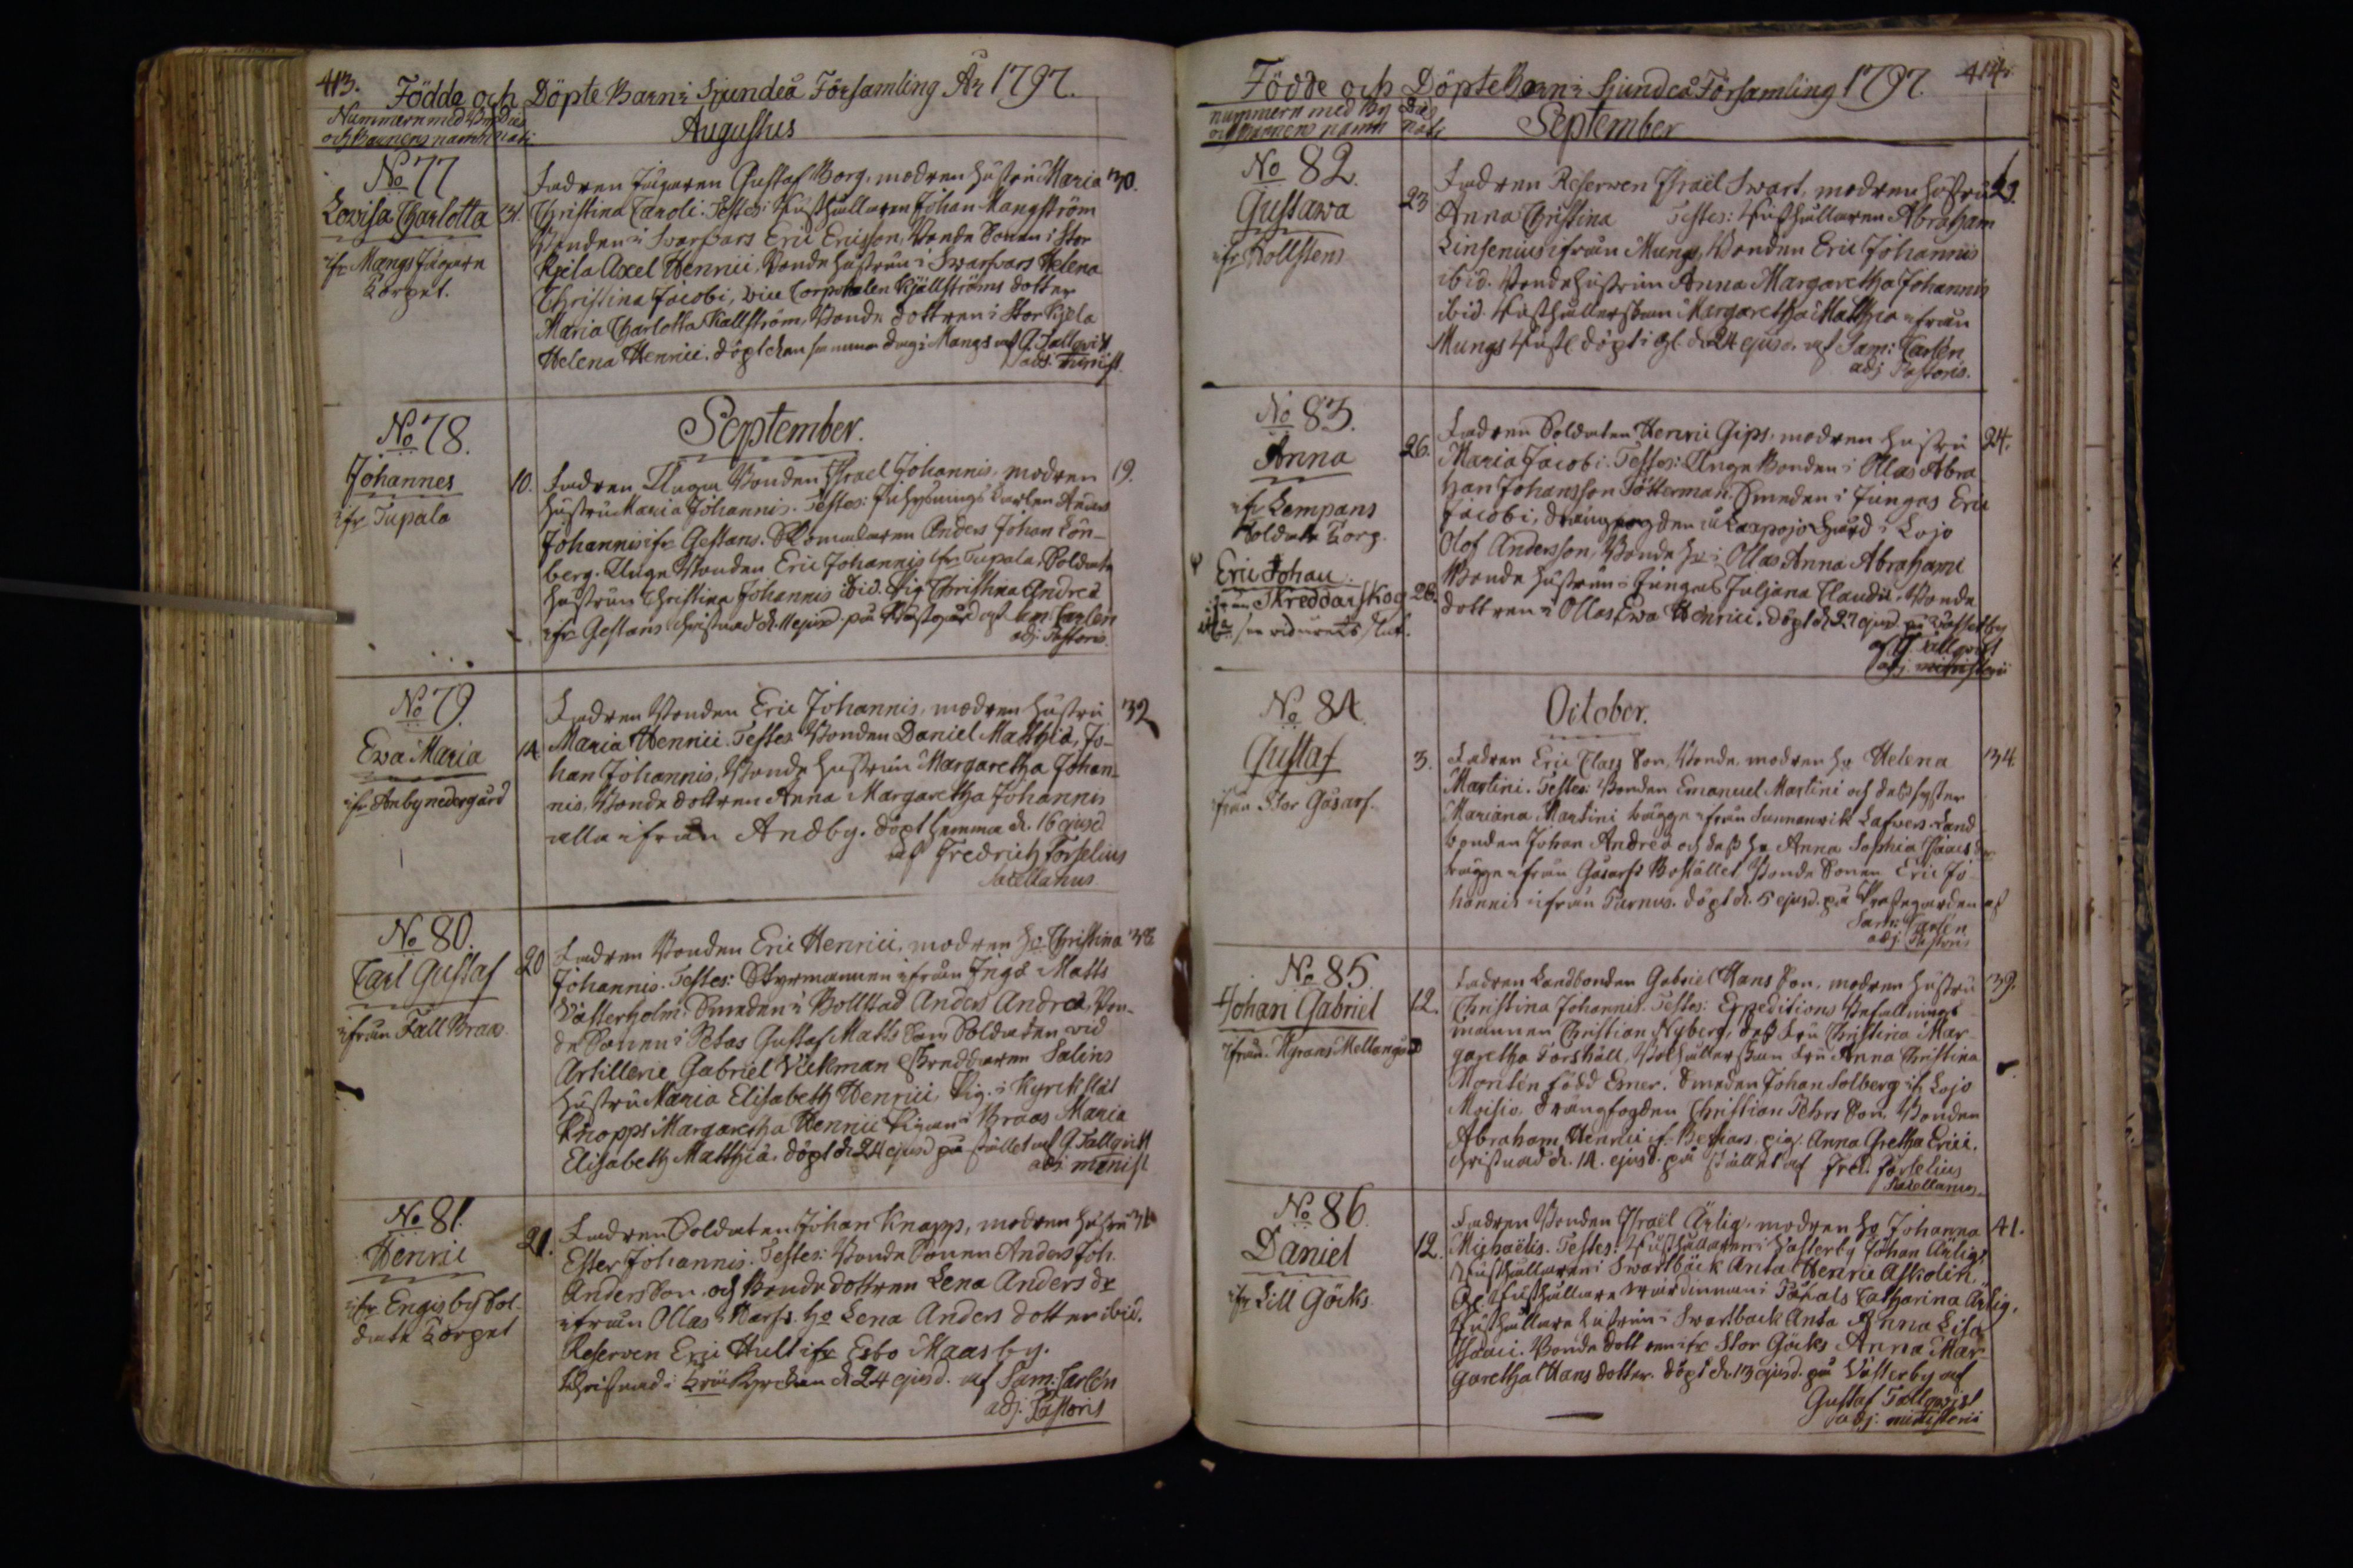 413.
Födde och Döpte Barn i Sjundeå Församling År 1797.
Nummern med Byn Dies
och Barnens namn nati
Augustus
No 77
Lovisa Charlotta
ifr Mangs Jägare
Torpet.
31.
Fadren Jägaren Gustaf Borg, modren hustru Maria 30.
Christina Caroli. Testes: Rusthållaren Johan Mangström
Bonden i Svarfvars Eric Ericsson, Bonde Sonen i Stor
Kyela Axel Henrici, Bonde hustrun i Swarfvars Helena
Christina Jacobi, vice Corporalen Kjällströms dotter
Maria Charlotta Kallström, Bonde dottren i Stor Kyela
Helena Henrici. döpt den samma dag i Mangs af G Tallqvist
adj. minist.
September.
No 78.
Johannes
ifr Tupala
10.
Fadren Unga Bonden Israel Johannis, modren 19.
hustru Maria Johannis. Testes: Inhysnings Karlen Anders
Johannis ifr Gestans. Skomakaren Anders Johan Lön-
berg. Unge Bonden Eric Johannis ifr Tupala, Soldate
hustrun Christina Johannis ibid. Pig Christina Andreæ
ifr Gestans christnad d. 11 ejusd. på Prästgård af Sam Carlén
adj. Pastoris.
No 79.
Ewa Maria
ifr Anby nedergård
14.
Fadren Bonden Eric Johannis, modren hustru 32
Maria Henrici. Testes Bonden Daniel Matthiæ, Jo-
han Johannis, Bonde hustrun Margaretha Johan-
nis, Bonde dottren Anna Margaretha Johannis
alla ifrån Andby. döpt hemma d. 16 ejusd
af Fredrich Forselius
Sacellanus.
No 80.
Carl Gustaf
ifrån Fall Braas
20
Fadren Bonden Eric Henrici, modren ho Christina
Johannis. Testes: Styrmannen ifrån Ingå Matts
Västerholm Smeden i Bollstad Anders Andreæ, Bon-
de Sonen i Petas Gustaf Matts Son Soldaten vid
Artillerie Gabriel Vickman Skreddaren Salins
hustru Maria Elisabeth Henrici, Pig. i Kyrckslät
Knopps Margaretha Henrici Pigan i Braas Maria
Elisabeth Matthiæ. döpt d 24 ejusd på stället af G Tallqvist
adj minist
No 81.
Henric
ifr Engisby Sol-
date Torpet
21.
Fadren Soldaten Johan Knapp, modren hustru
Ester Johannis. Testes: Bonde Sonen Anders Joh.
Anders Son, och Bonde dottren Lena Anders dr
ifrån Ollas Karfs. ho Lena Anders dotter ibid.
Reserven Eric Hult ifr Esbo Maasby.
Christnad i Kyrckan d 24 ejusd. af Sam: Carlén
adj. Pastoris
Födde och Döpte Barn i Sjundeå Församling 1797. 414.
nummern med By Dies
och Barnens namn nati
September
No 82.
Gustawa
ifr Kollstens
23
Fadren Reserven Israël Swart, modren hustru
Anna Christina Testes: Rusthållaren Abraham
Linsenius ifrån Mungs, Bonden Eric Johannis
ibid. Bonde hustrun Anna Margaretha Johannis
ibid. Rusthållerskan Margaretha Matthiæ ifrån
Mungs döpt d 24 ejusd. af Sam: Carlén
adj Pastoris.
No 83.
Anna
ifr Kempans
Soldate Torp.
26.
Fadren Soldaten Henric Gips, modren hustru 24.
Maria Jacobi. Testes: Unge Bonden i Ollas Abra
ham Johansson Tötterman. Smeden i Jungas Eric
Jacobi, drängfogden å Laxpojo Gård i Lojo
Olof Andersson, Bonde ho i Ollas Anna Abrahami
Bonde hustrun i Jungas Juljana Claudii. Bonde
dottren i Ollas, Ewa Henrici. döpt d 27 ejusd. på Västerby
af G Tallqvist
adj ministerii
Eric Johan
ifrån Skreddarskog 26.
se vid årets slut.
October.
No 84.
Gustaf
ifrån Stor Gåsarf.
3.
Fadren Eric Clas Son, Bonde, modren ho Helena 34.
Martini. Testes: Bonden Emanuel Martini och dess syster
Mariana Martini bägge ifrån Sunnanvik Lafvers. Land
bonden Johan Andreæ och dess ho Anna Sophia Isaacs dr
bägge ifrån Gåsarfs Bostället Bonde Sonen Eric Jo-
hannis ifrån Purnus. döpt d. 5 ejusd. på Prästegården af
Sam: Carlén
adj. Pastoris
No 85.
Johan Gabriel
ifrån Kyrans Mellangård
12.
Fadren Landbonden Gabriel Hans Son, modren hustru 39.
Christina Johannis. Testes: Expeditions Befallnings-
mannen Christian Nyberg, dess fru Christina Mar-
garetha Forshäll, Bokhållar fru Anna Christina
Moritén född Emer. Smeden Johan Solberg if. Lojo
Moisio, drängfogden Christian Pehrs Son, Bonden
Abraham Henrici if. pig. Anna Gretha Erici.
christnad d. 14. ejusd. på stället af Fred. Forselius
Sacellanus
No 86.
Daniel
ifr Lill Göcks
12.
Fadren Bonden Israël Ärlig, modren ho Johanna 41.
Michaëlis. Testes: Rusthållaren i Västerby Johan Ärlig,
Rusthållaren i Swartbäck Anta Henric Askolin,
Rusthållare värdinnan i Påhals Catharina Ärlig,
Rusthållare hustrun i Swartback Anta Anna Lisa
Isaaci. Bonde dottren ifr Stor Göcks Anna Mar-
garetha Hans dotter. döpt d. 13 ejusd. på Västerby af
Gustaf Tallqwist
adj. ministerii